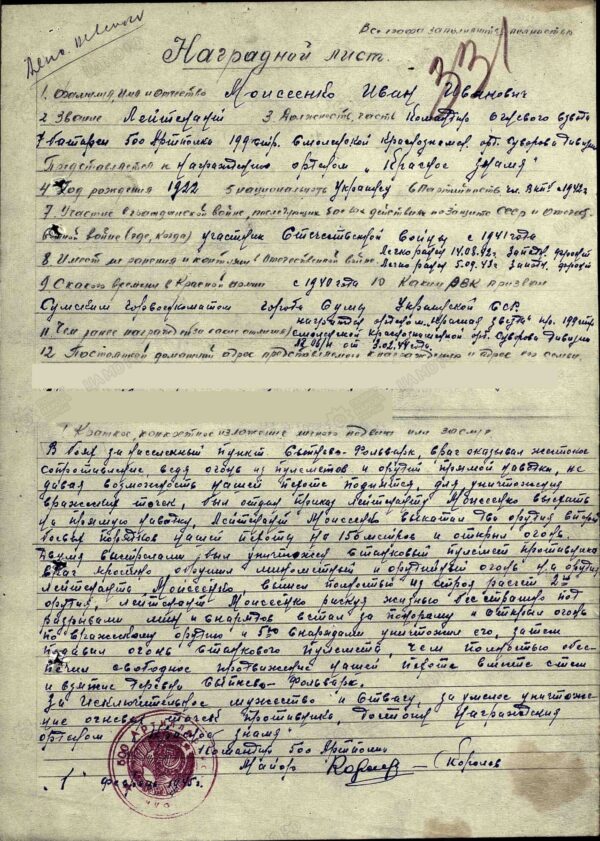 Все графы заполнять полностью
331
Наградной лист.
1. Фамилия, имя и отчество Моисеенко Иван Иванович
2 Звание Лейтенант 3. Должность, часть Командир огневого взвода
7 батареи 500 артполка 199 стр. Смоленской Краснознамен. орд. Суворова дивизии
Представляется к награждению орденом „Красное знамя"
4. Год рождения 1922 5 национальность Украинец 6 Партийность чл. ВКПб с 1942г
7. Участие в гражданской войне, последующих боевых действиях по защите СССР и Отечест-
венной войне (где, когда) участник Отечественной войны с 1941 года
8 Имеет ли ранения и контузии в Отечественной войне Легко ранен 14.08.42г Западн. фронт
Легко ранен 5.09.43г Западн. фронт
9 С какого времени в Красной армии с 1940 года 10 Каким РВК призван
Сумским горвоенкоматом города Сумы Украинской ССР
11. Чем ранее награжден (за какие отличия) награжден орденом „Красная звезда" пр. 199 стр.
Смоленской Краснознаменной орд. Суворова дивизии
от 9.02.44 года.
12 Постоянный домашний адрес представляемого к награждению и адрес его семьи
1 Краткое, конкретное изложение личного подвига или заслуг
В бою за населенный пункт Фольварк, враг оказывал жестокое
сопротивление, ведя огонь из пулеметов и орудий прямой наводки, не
давая возможность нашей пехоте подняться, для уничтожения
вражеских точек, был отдан приказ лейтенанту Моисеенко выехать
на прямую наводку, Лейтенант Моисеенко выкатил два орудия впереди
боевых порядков нашей пехоты на 150 метров и открыл огонь.
Двумя выстрелами был уничтожен станковый пулемет противника
Враг яростно обрушил минометный и орудийный огонь на орудия
лейтенанта Моисеенко вышел полностью из строя расчет 2го
орудия, лейтенант Моисеенко рискуя жизнью бесстрашно под
разрывами мин и снарядов встал за панораму и открыл огонь
по вражескому орудию и снарядами уничтожил его, затем
подавил огонь станкового пулемета, чем полностью обес-
печил свободное продвижение нашей пехоте вместе с тем
и взятие деревни Фольварк.
За исключительное мужество и отвагу, за умелое уничтоже-
ние огневых точек противника, достоин награждения
орденом „Красное знамя"
Командир 500 артполка
Майор Королев
1 февраля 1945г.